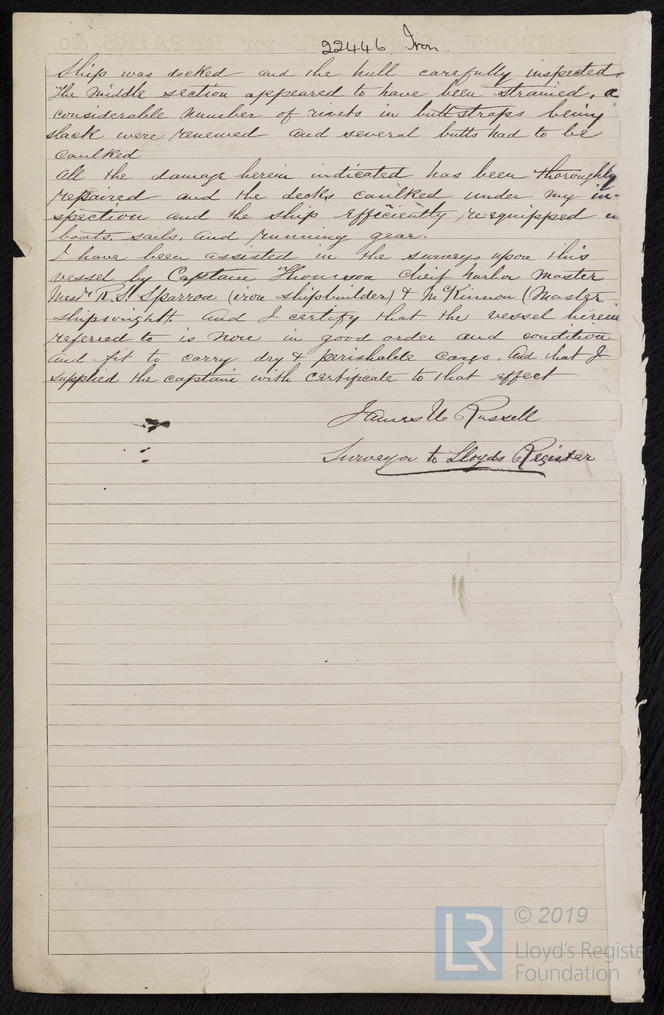 22446 Iron.
Ship was docked and the hull carefully inspected.
The middle section appeared to have been strained, a
considerable number of rivets in buttstraps being
slack were renewed and several butts had to be
caulked
All the damage herein indicated has been thoroughly
repaired and the decks caulked under my in-
spection and the ship efficiently re-equipped in
boats, sails, and running gear.
I have been assisted in the surveys upon this
vessel by Captain Thomson Chief harbor Master
Messrs R. S. Sparrow (iron shipbuilder) & McKinnon (Master
shipwright). And I certify that the vessel herein
referred to is now in good order and condition
and fit to carry dry & perishable cargo. And that I
supplied the captain with certificate to that effect
James Russell
Surveyor to Lloyds Register
LR
© 2019
Lloyd's Register
Foundation